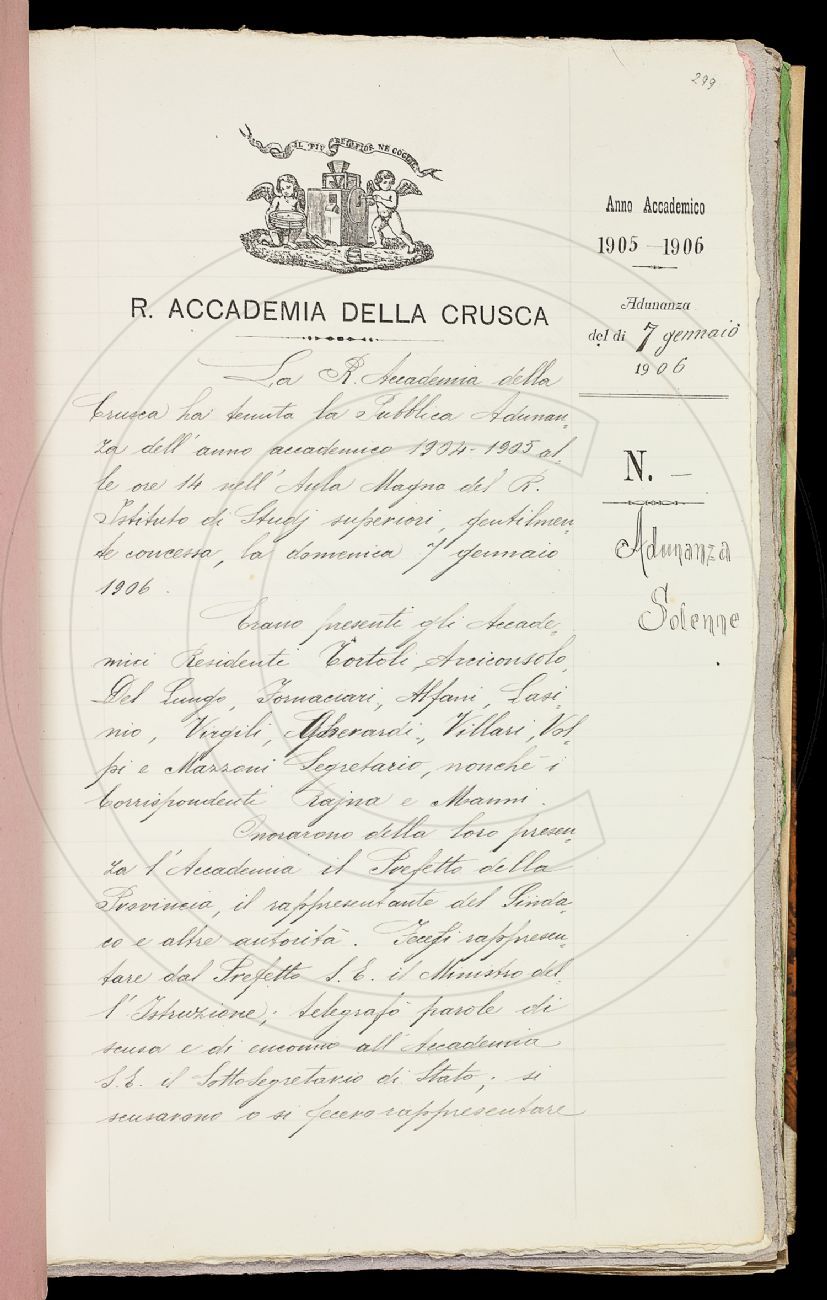 299
IL PIÙ BEL FIOR NE COGLIE
R. ACCADEMIA DELLA CRUSCA
Anno Accademico
1905-1906
Adunanza
del dì 7 gennaio
1906
N. —
Adunanza
Solenne
La R. Accademia della
Crusca ha tenuta la Pubblica Adunan-
za dell'anno accademico 1904-1905 al-
le ore 14 nell'Aula Magna del R.
Istituto di Studj superiori, gentilmen-
te concessa, la domenica 7 gennaio
1906.
Erano presenti gli Accade-
mici Residenti Tortoli, Arciconsolo,
Del Lungo, Fornaciari, Alfani, Lasi-
nio, Virgili, Gherardi, Villari, Vol-
pi e Mazzoni Segretario, nonchè i
Corrispondenti Rajna e Manni.
Onorarono della loro presen-
za l'Accademia il Prefetto della
Provincia, il rappresentante del Sinda-
co e altre autorità. Fecesi rappresen-
tare dal Prefetto S. E. il Ministro del-
l'Istruzione; telegrafò parole di
scusa e di encomio all'Accademia
S. E. il Sottosegretario di Stato; si
scusarono o si fecero rappresentare